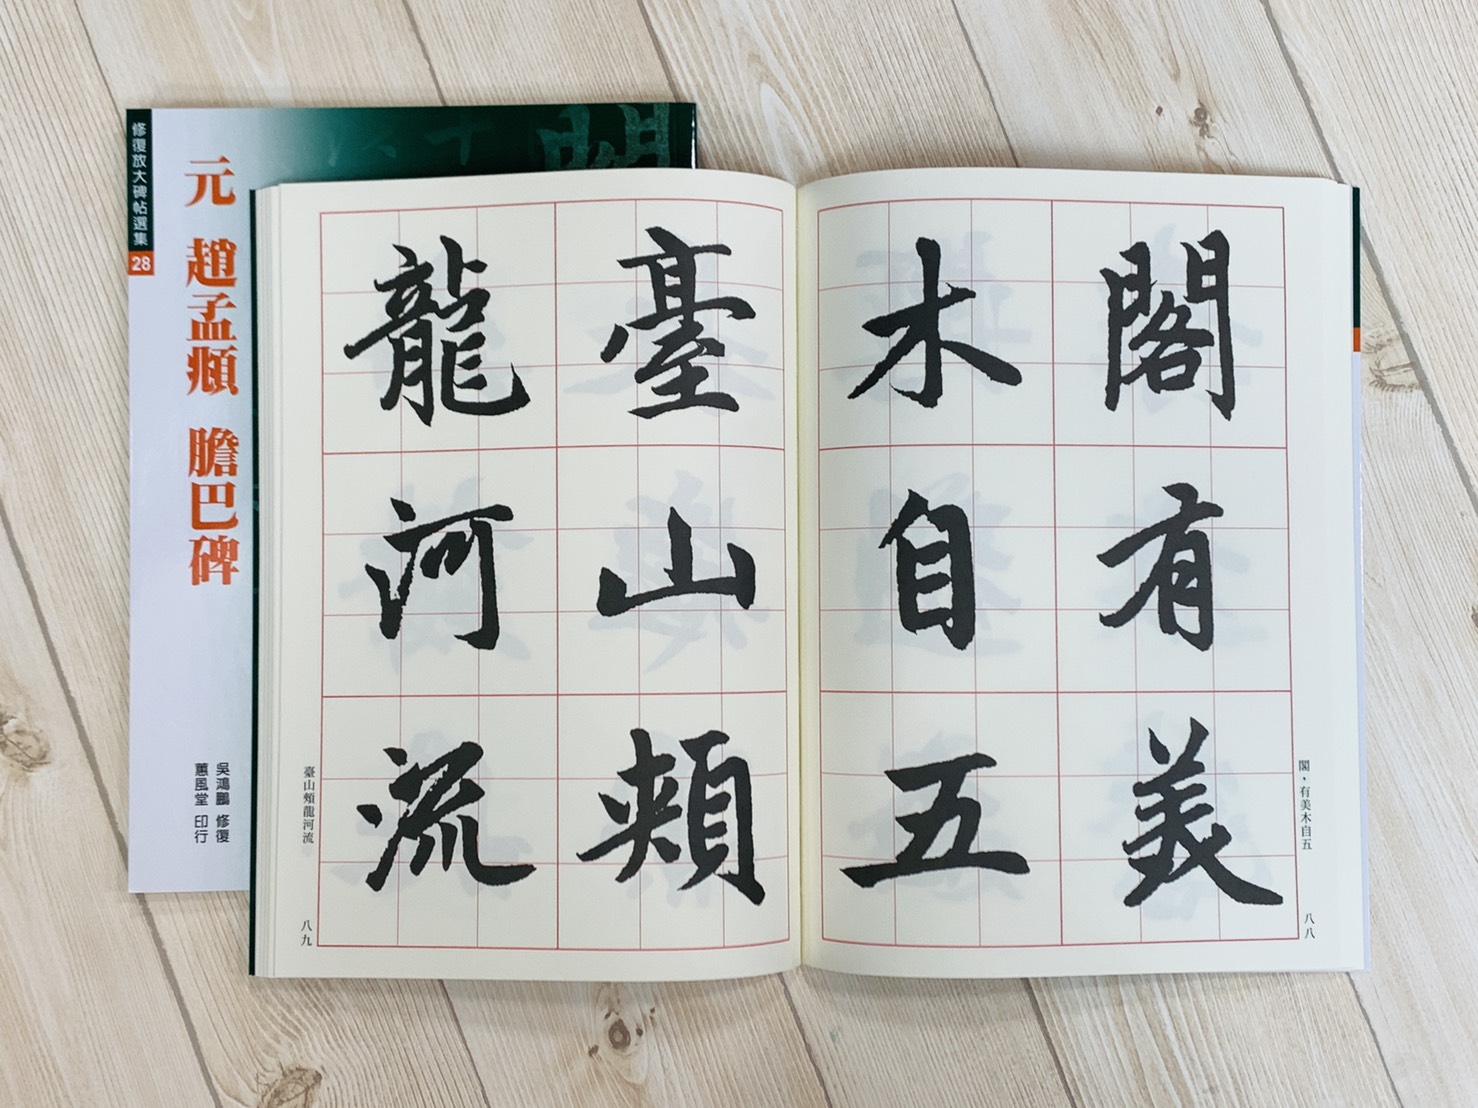 修復放大碑帖選集
28
元 趙孟頫 膽巴碑
吳鴻鵬 修復
蕙風堂 印行
閣有美
木自五
臺山頰
龍河流
閣・有美木自五
八八
臺山頰龍河流
八九